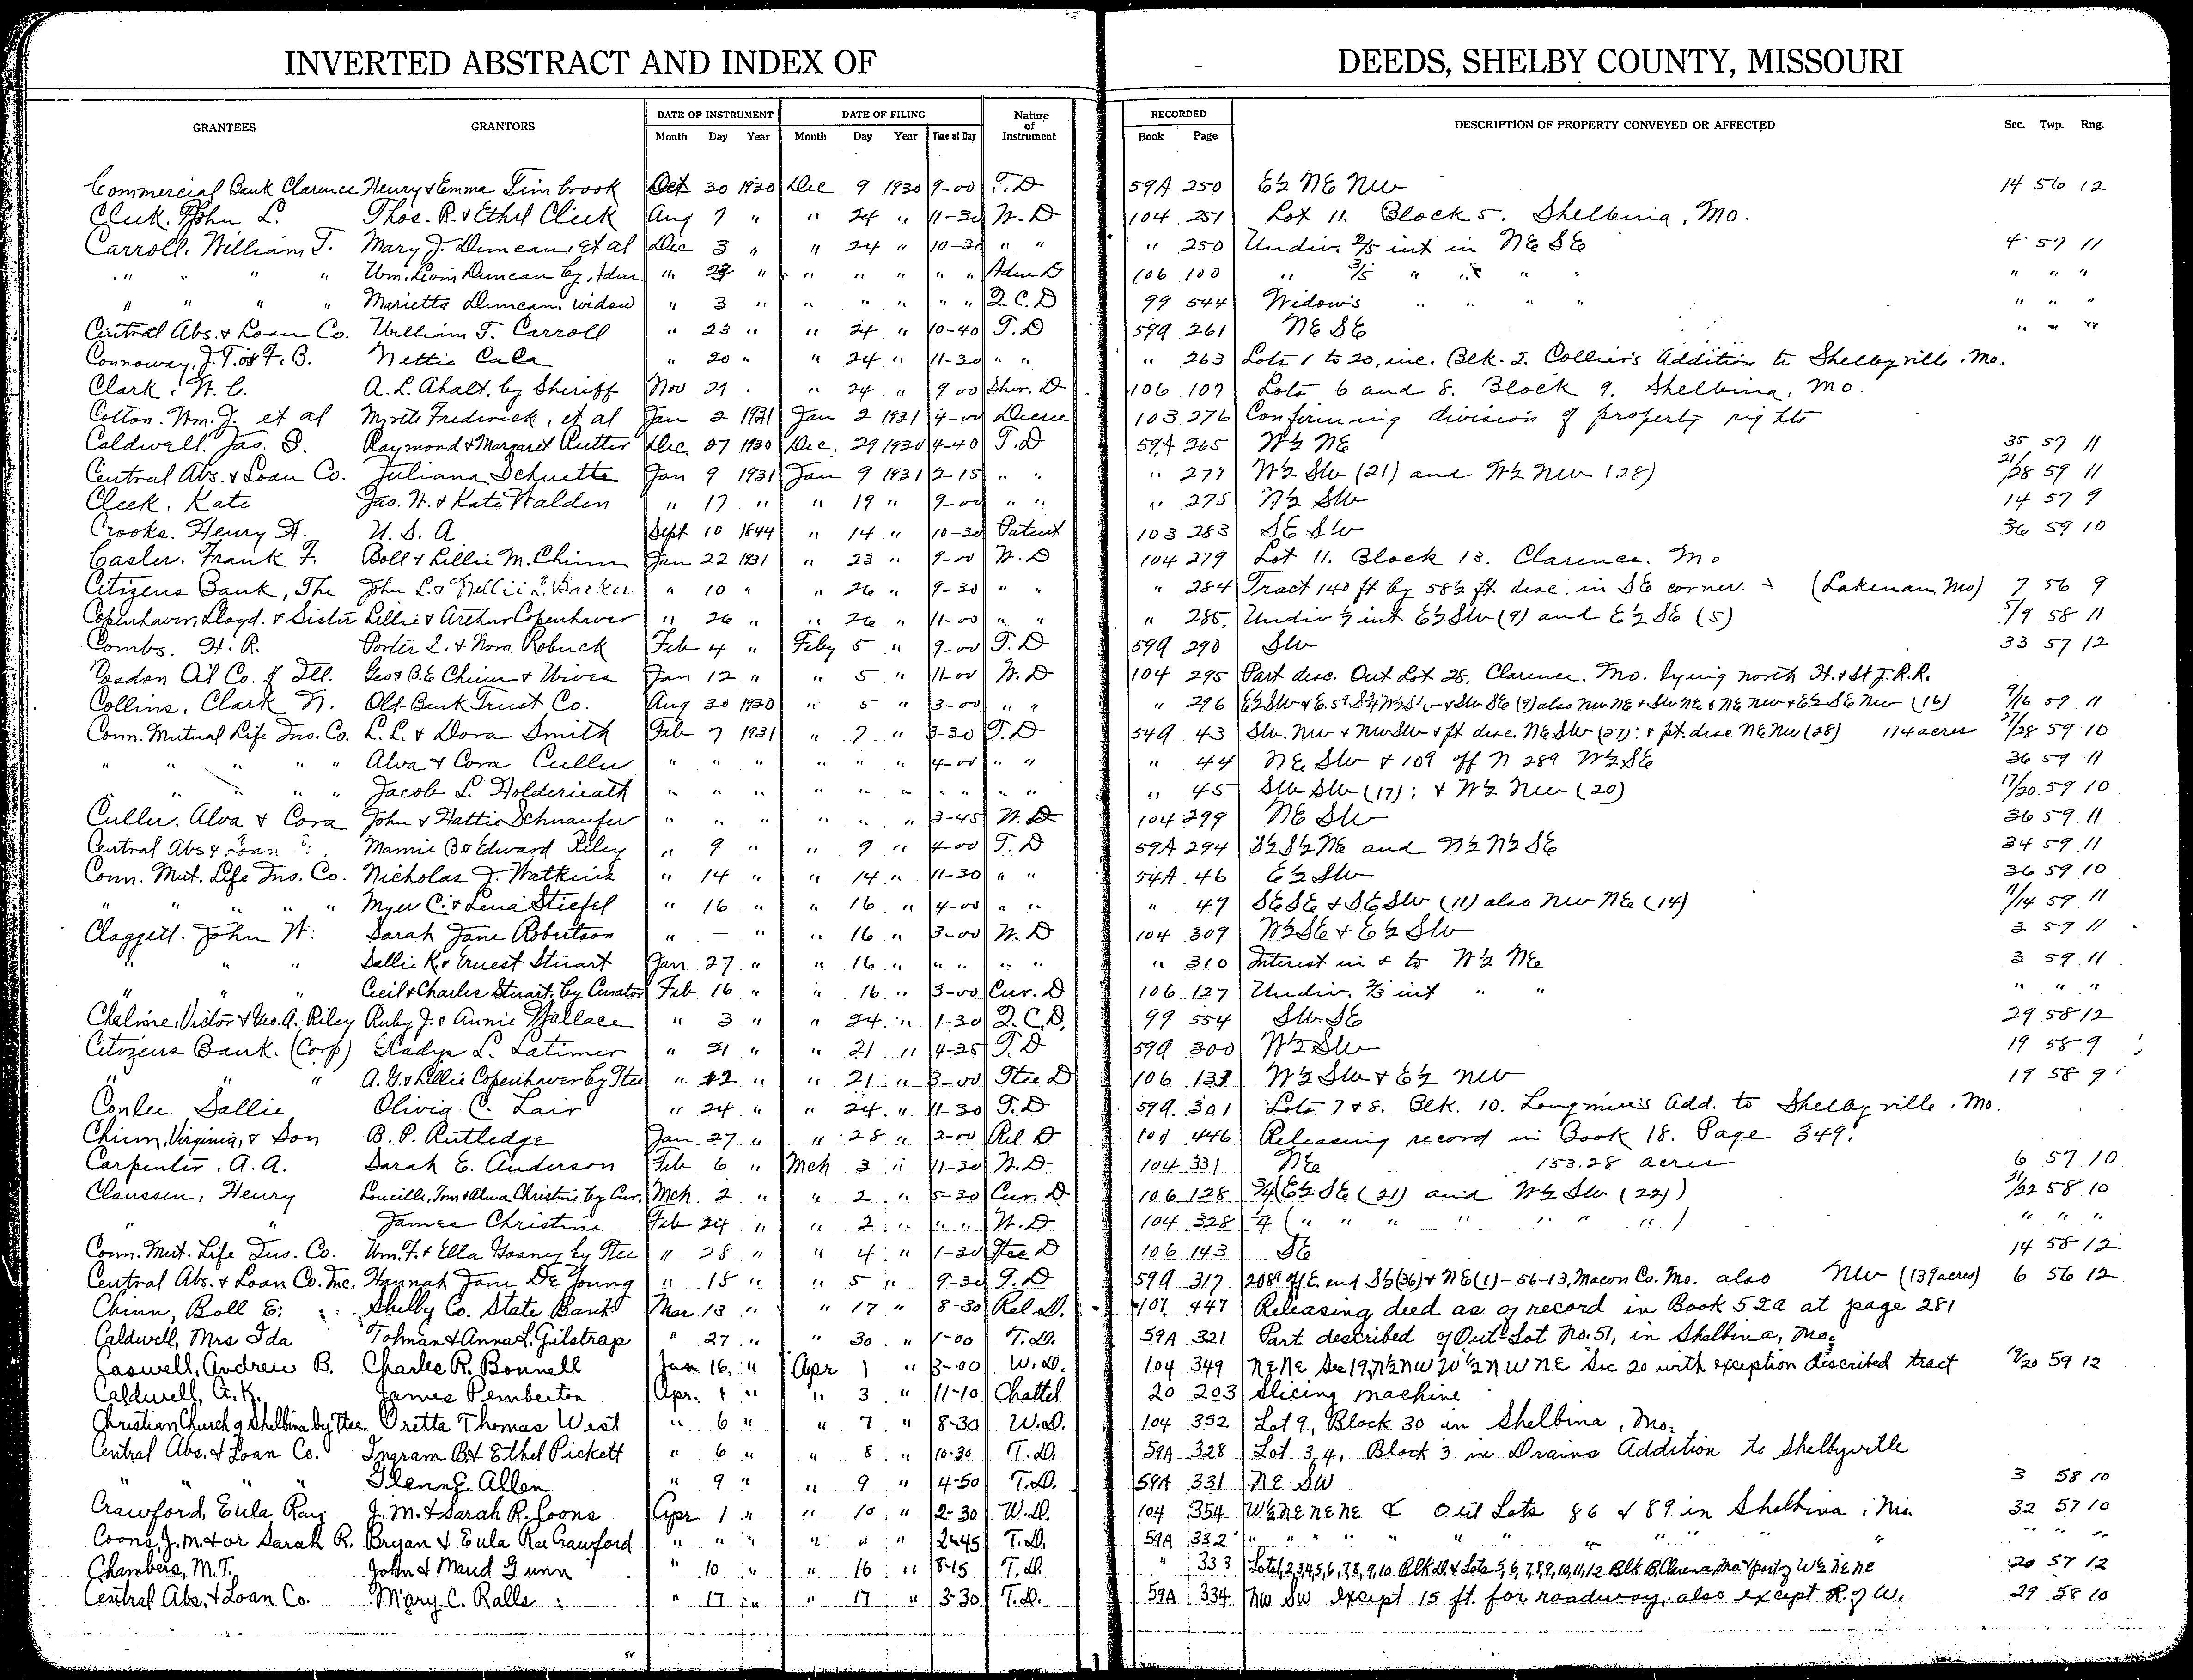 INVERTED ABSTRACT AND INDEX OF DEEDS, SHELBY COUNTY, MISSOURI
GRANTEES GRANTORS DATE OF INSTRUMENT DATE OF FILING Nature of Instrument RECORDED DESCRIPTION OF PROPERTY CONVEYED OR AFFECTED Sec. Twp. Rng.
Month Day Year Month Day Year Time of Day Book Page
Commercial Bank Clarence Henry & Emma Timbrook Oct 30 1930 Dec 9 1930 9-00 T.D 59A 250 E½ NE NW 14 56 12
Cleek. John L. Thos. R. & Ethel Cleek Aug 7 " " 24 " 11-30 W.D 104 251 Lot 11. Block 5. Shelbina, Mo.
Carroll. William T. Mary J. Duncan, et al Dec 3 " " 24 " 10-30 " " " 250 Undiv. 2/5 int in NE SE 4 57 11
" " " " Wm. Levin Duncan by Adm " 23 " " " " " " Adm D 106 100 " 3/5 " " " " " " "
" " " " Marietta Duncan. widow " 3 " " " " " " Q.C.D 99 544 Widow's " " " " " " "
Central Abs. & Loan Co. William T. Carroll " 23 " " 24 " 10-40 T.D 59A 261 NE SE " " "
Connoway, J.T. or F.B. Nettie CaCa " 20 " " 24 " 11-30 " " " 263 Lots 1 to 20, inc. Blk. 2. Collier's Addition to Shelbyville, Mo.
Clark. W. C. A. L. Ahalt, by Sheriff Nov 29 " 24 " 9 00 Sher. D 106 107 Lots 6 and 8. Block 9. Shelbina, Mo.
Cotton. Wm. J. et al Myrtle Frederick, et al Jan 2 1931 Jan 2 1931 4-00 Decree 103 276 Confirming division of property rights
Caldwell. Jas. S. Raymond & Margaret Rutter Dec. 27 1930 Dec. 29 1930 4-40 T.D 59A 265 W½ NE 35 57 11
Central Abs. & Loan Co. Juliana Schuette Jan 9 1931 Jan 9 1931 2-15 " " " 271 W½ SW (21) and W½ NW (28) 21/28 59 11
Cleek. Kate Jas. W. & Kate Walden " 17 " " 19 " 9-00 " " " 275 N½ SW 14 57 9
Crooks. Henry H. U. S. A Sept 10 1844 " 14 " 10-30 Patent 103 283 SE SW 36 59 10
Casler. Frank F. Boll & Lillie M. Chinn Jan 22 1931 " 23 " 9-00 W.D 104 279 Lot 11. Block 13. Clarence. Mo
Citizens Bank, The John L. & Nellie L. Barker " 10 " " 26 " 9-30 " " " 284 Tract 140 ft by 58½ ft desc. in SE corner. (Lakenan, Mo) 7 56 9
Copenhaver, Lloyd. & Sister Lillie & Arthur Copenhaver " 26 " " 26 " 11-00 " " " 285 Undiv ½ int E½ SW (9) and E½ SE (5) 5/9 58 11
Combs. H. R. Porter L. & Nora Robuck Feb 4 " Feby 5 " 9-00 T.D 59A 290 SW 33 57 12
Cosdon Oil Co. of Ill. Geo & B.E Chinn & Wives Jan 12 " " 5 " 11-00 W.D 104 295 Part desc. Out Lot 28. Clarence. Mo. lying north H. & St J. R.R.
Collins, Clark N. Old Bank Trust Co. Aug 30 1930 " 5 " 3-00 " " " 296 E½ SW & E. 59 S¾ W½ SW & SW SE (9) also NW NE & SW NE & NE NW & E½ SE NW (16) 9/16 59 11
Conn. Mutual Life Ins. Co. L. L. & Dora Smith Feb 7 1931 " 7 " 3-30 T.D 54A 43 SW. NW & NW SW & pt desc. NE SW (27): & pt. desc NE NW (28) 114 acres 27/28 59 10
" " " " " Alva & Cora Culler " " " " " " 4-00 " " " 44 NE SW & 10a off N 28a W½ SE 36 59 11
" " " " " Jacob L. Holderieath " " " " " " " " " " " 45 SW SW (17): & W½ NW (20) 17/20 59 10
Culler. Alva & Cora John & Hattie Schnaufer " " " " " " 3-45 W.D 104 299 NE SW 36 59 11
Central Abs & Loan Co. Mamie B & Edward Riley " 9 " " 9 " 4-00 T.D 59A 294 S½ S½ NE and N½ N½ SE 34 59 11
Conn. Mut. Life Ins. Co. Nicholas J. Watkins " 14 " " 14 " 11-30 " " 54A 46 E½ SW 36 59 10
" " " " " Myer C. & Lena Stiefel " 16 " " 16 " 4-00 " " " 47 SE SE & SE SW (11) also NW NE (14) 11/14 59 11
Claggett. John W. Sarah Jane Robertson " — " " 16 " 3-00 W.D 104 309 W½ SE & E½ SW 3 59 11
" " " Sallie K. & Ernest Stuart Jan 27 " " 16 " " " " " " 310 Interest in & to W½ NE 3 59 11
" " " Cecil & Charles Stuart, by Curator Feb 16 " " 16 " 3-00 Cur. D 106 127 Undiv. 2/3 int " " " " "
Cheline, Victor & Geo. A. Riley Ruby J. & Annie Wallace " 3 " " 24 " 1-30 Q.C.D. 99 554 SW SE 29 58 12
Citizens Bank. (Corp) Gladys L. Latimer " 21 " " 21 " 4-25 T.D 59A 300 W½ SW 19 58 9
" " " A. G. & Lillie Copenhaver by Ttee " 12 " " 21 " 3-00 Ttee D 106 133 W½ SW & E½ NW 19 58 9
Conlee. Sallie Olivia C. Lair " 24 " " 24 " 11-30 T.D 59A 301 Lots 7 & 8. Blk. 10. Longmire's Add. to Shelbyville, Mo.
Chinn, Virginia, & Son B. P. Rutledge Jan. 27 " " 28 " 2-00 Rel D 101 446 Releasing record in Book 18. Page 349.
Carpenter. A. A. Sarah E. Anderson Feb 6 " Mch 3 " 11-30 W.D. 104 331 NE 153.28 acres 6 57 10
Claussen, Henry Loucille, Tom & Alma Christine by Cur. Mch. 2 " " 2 " 5-30 Cur. D 106 128 ¾ (E½ SE (21) and W½ SW (22)) 21/22 58 10
" " James Christine Feb 24 " " 2 " " " W.D 104 328 ¼ ( " " " " " " " ) " " "
Conn. Mut. Life Ins. Co. Wm. F. & Ella Gosney by Ttee " 28 " " 4 " 1-30 Ttee D 106 143 SE 14 58 12
Central Abs. & Loan Co. Inc. Hannah Jane De Young " 18 " " 5 " 9-30 T.D 59A 317 208a off E. end S½ (36) & NE (1) - 56-13, Macon Co. Mo. also NW (139 acres) 6 56 12
Chinn, Boll E. Shelby Co. State Bank Mar. 13 " " 17 " 8-30 Rel D. 101 447 Releasing deed as of record in Book 52a at page 281
Caldwell, Mrs Ida Tolman & Anna L. Gilstrap " 27 " " 30 " 1-00 T.D. 59A 321 Part described of Out Lot No. 51, in Shelbina, Mo.
Caswell, Andrew B. Charles R. Bonnell Jan 16 " Apr 1 " 3-00 W.D. 104 349 NENE Sec 19, N½ NW W½ NW NE Sec 20 with exception discribed tract 19/20 59 12
Caldwell, G. K. James Pemberton Apr. 1 " " 3 " 11-10 Chattel 20 203 Slicing machine
Christian Church of Shelbina by Ttee. Oretta Thomas West " 6 " " 7 " 8-30 W.D. 104 352 Lot 9, Block 30 in Shelbina, Mo.
Central Abs. & Loan Co. Ingram B. & Ethel Pickett " 6 " " 8 " 10-30 T.D. 59A 328 Lot 3, 4, Block 3 in Drains Addition to Shelbyville
" " " " Glenn E. Allen " 9 " " 9 " 4-50 T.D. 59A 331 NE SW 3 58 10
Crawford, Eula Ray J. M. & Sarah R. Coons Apr 1 " " 10 " 2-30 W.D. 104 354 W½ NE NE NE & Out Lots 86 & 89 in Shelbina, Mo. 32 57 10
Coons, J. M. & or Sarah R. Bryan & Eula Rae Crawford " " " " " " 2-45 T.D. 59A 332 " " " " " " " " " " " "
Chambers, M. T. John & Maud Gunn " 10 " " 16 " 8-15 T.D. " 333 Lots 1,2,3,4,5,6,7,8,9,10 Blk D. & Lots 5,6,7,8,9,10,11,12 Blk B. Clarence, Mo. & part of W½ NE NE 20 57 12
Central Abs. & Loan Co. Mary C. Ralls " 17 " " 17 " 3-30 T.D. 59A 334 NW SW except 15 ft. for roadway, also except R. of W. 29 58 10